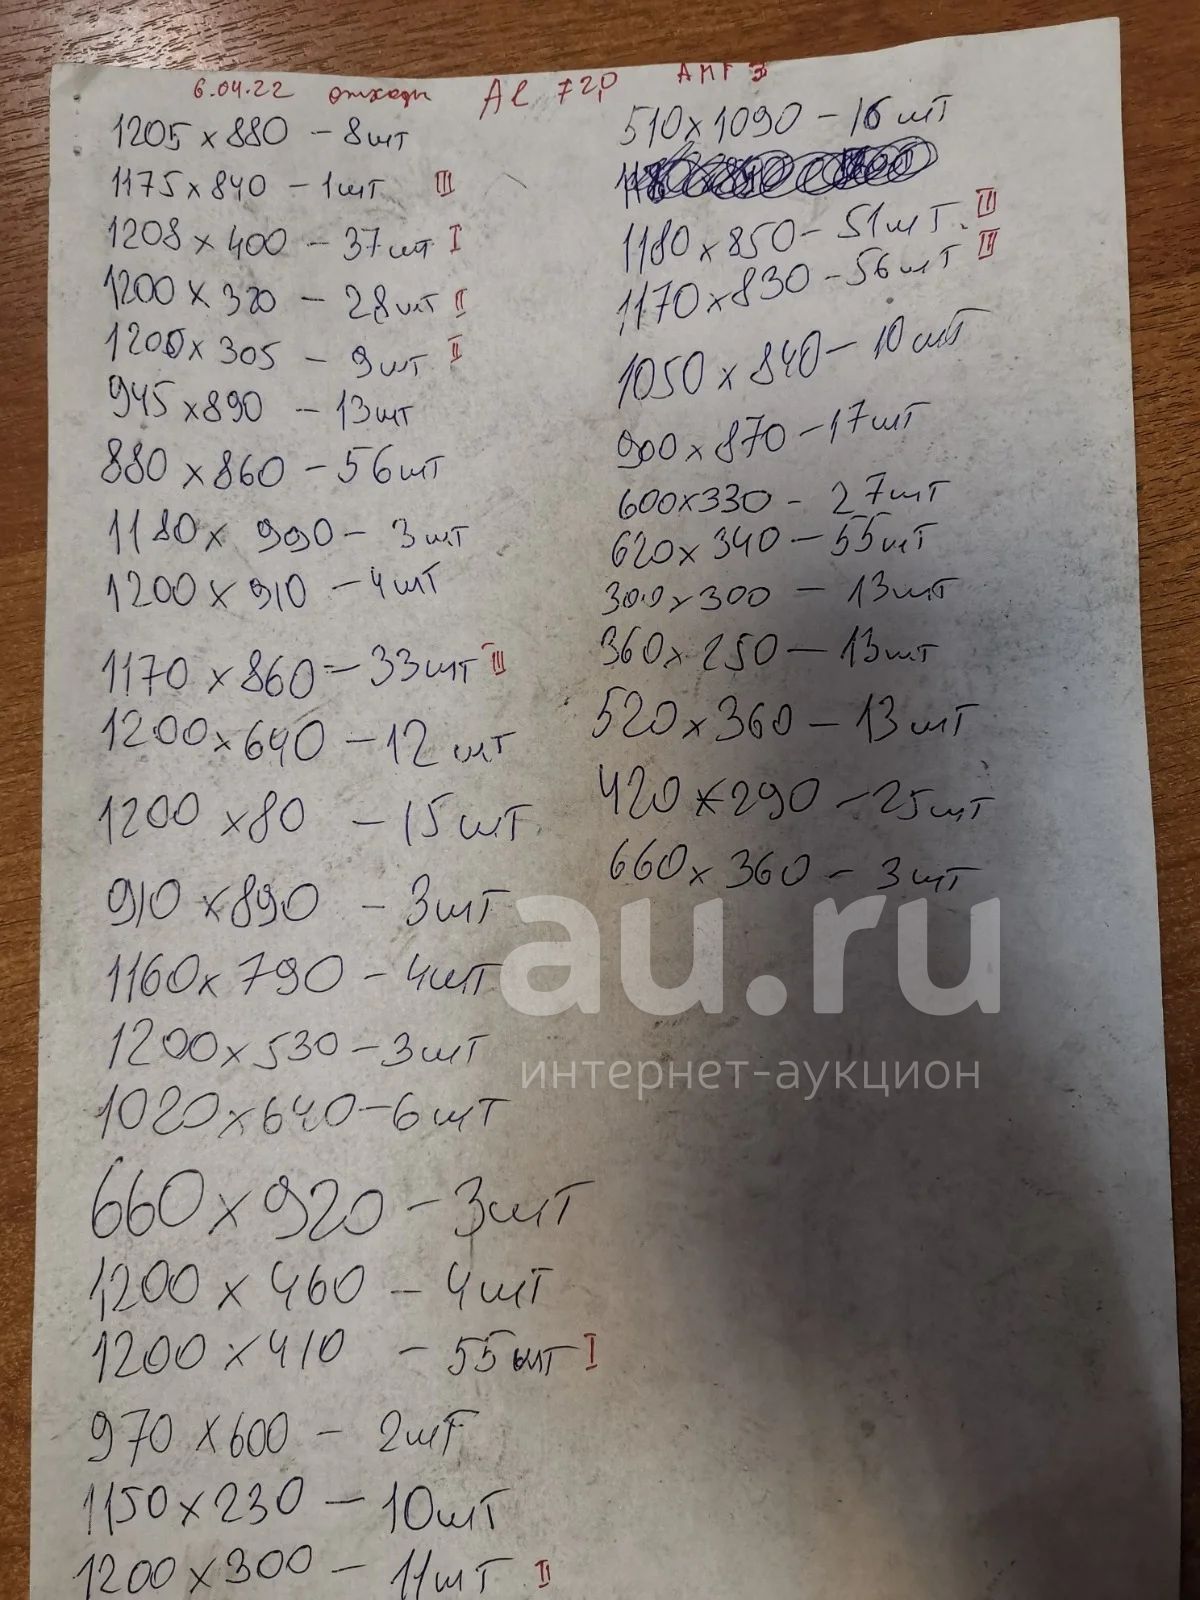 6.04.22 отходы Al 72р АМГ 3
1205 x 880 - 8шт
1175 x 840 - 1шт III
1208 x 400 - 37шт I
1200 x 320 - 28шт II
1200 x 305 - 9шт II
945 x 890 - 13шт
880 x 860 - 56шт
1180 x 990 - 3шт
1200 x 910 - 4шт
1170 x 860 - 33шт III
1200 x 640 - 12 шт
1200 x 80 - 15шт
910 x 890 - 3шт
1160 x 790 - 4шт
1200 x 530 - 3шт
1020 x 640 - 6шт
660 x 920 - 3шт
1200 x 460 - 4шт
1200 x 410 - 55шт I
970 x 600 - 2шт
1150 x 230 - 10шт
1200 x 300 - 11шт II
510 x 1090 - 16 шт
1180 x 850 - 51шт. III
1170 x 830 - 56шт III
1050 x 840 - 10шт
900 x 870 - 17шт
600 x 330 - 27шт
620 x 340 - 55шт
300 x 300 - 13шт
360 x 250 - 13шт
520 x 360 - 13шт
420 x 290 - 25шт
660 x 360 - 3шт
au.ru
интернет-аукцион